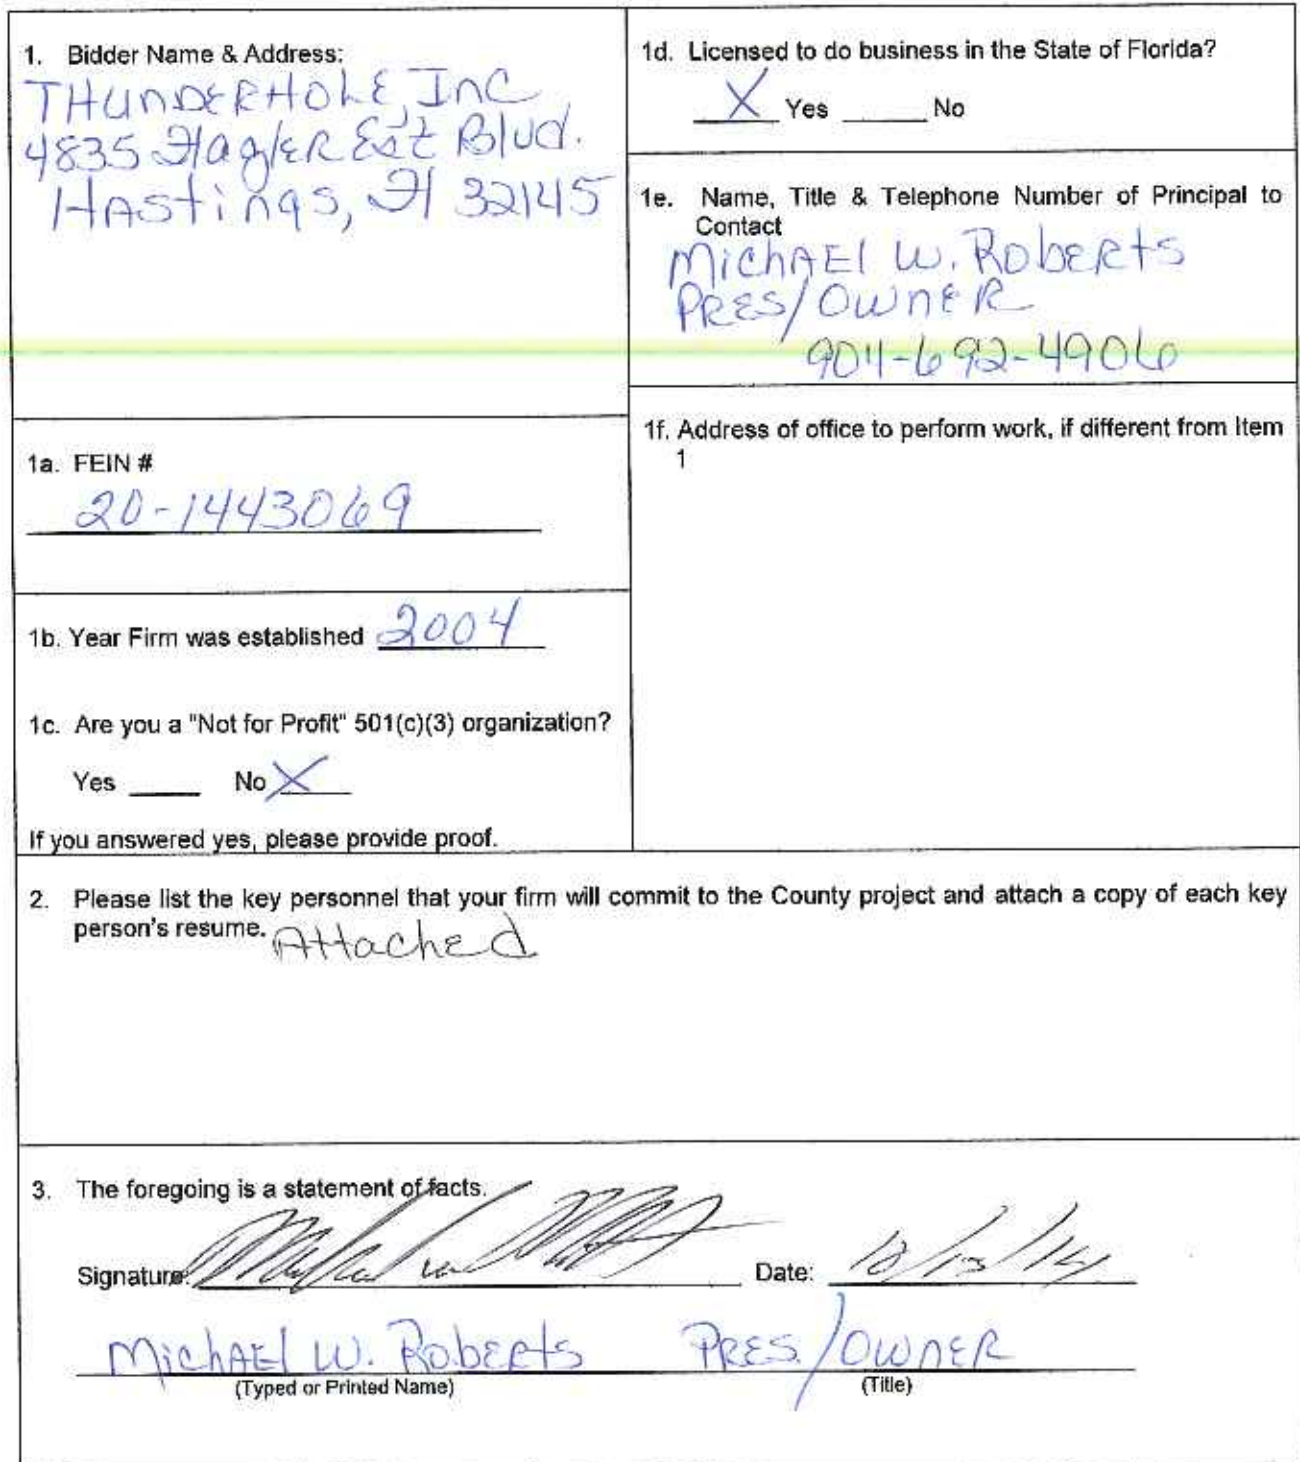 1. Bidder Name & Address:
THUNDERHOLE, INC
4835 Flagler Est Blvd.
Hastings, Fl 32145
1a. FEIN #
20-1443069
1b. Year Firm was established 2004
1c. Are you a "Not for Profit" 501(c)(3) organization?
Yes ____ No X
If you answered yes, please provide proof.
1d. Licensed to do business in the State of Florida?
X Yes ____ No
1e. Name, Title & Telephone Number of Principal to
Contact
Michael W. Roberts
PRES/OWNER
904-692-4906
1f. Address of office to perform work, if different from Item
1
2. Please list the key personnel that your firm will commit to the County project and attach a copy of each key
person's resume. Attached
3. The foregoing is a statement of facts.
Signature: Date:
Michael W. Roberts PRES./OWNER
(Typed or Printed Name) (Title)